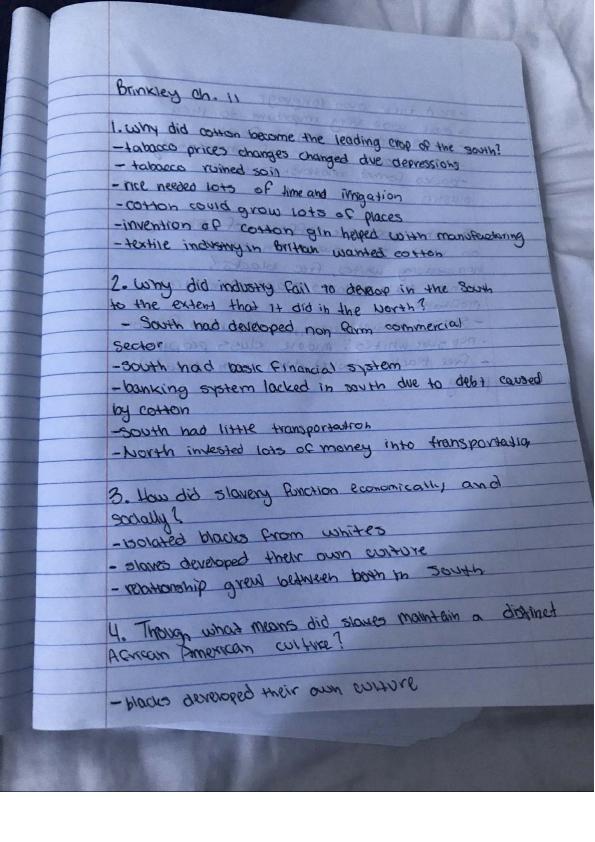 Brinkley Ch. 11
1. Why did cotton become the leading crop of the south?
-tabacco prices changes changed due depressions
- tabacco ruined soil
-rice needed lots of time and irrigation
-cotton could grow lots of places
-invention of cotton gin helped with manufacturing
-textile industry in Brittan wanted cotton
2. Why did industry fail to develop in the South
to the extent that it did in the North?
- South had developed non farm commercial
sector
-south had basic financial system
-banking system lacked in south due to debt caused
by cotton
-south had little transportation
-North invested lots of money into transportatio
3. How did slavery function economically and
socially?
-isolated blacks from whites
- slaves developed their own culture
- relationship grew between both in south
4. Though what means did slaves maintain a distinct
African American culture?
-blacks developed their own culture